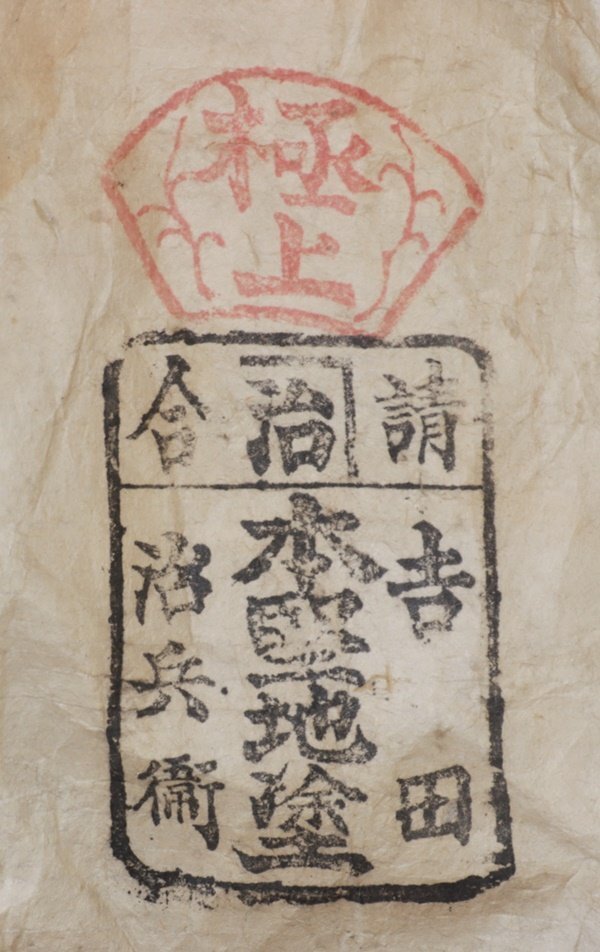 極上
請合
治
吉田
本堅地塗
治兵衛